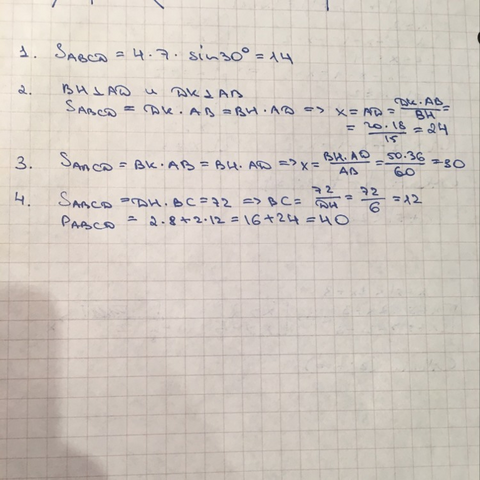 1. SABCD = 4 · 7 · sin30° = 14
2. BH⊥AD и DK⊥AB
SABCD = DK · AB = BH · AD => x = AD = DK·AB/BH =
= 20·18/15 = 24
3. SABCD = BK · AB = BH · AD => x = BH·AD/AB = 50·36/60 = 30
4. SABCD = DH · BC = 72 => BC = 72/DH = 72/6 = 12
PABCD = 2·8+2·12 = 16+24 = 40